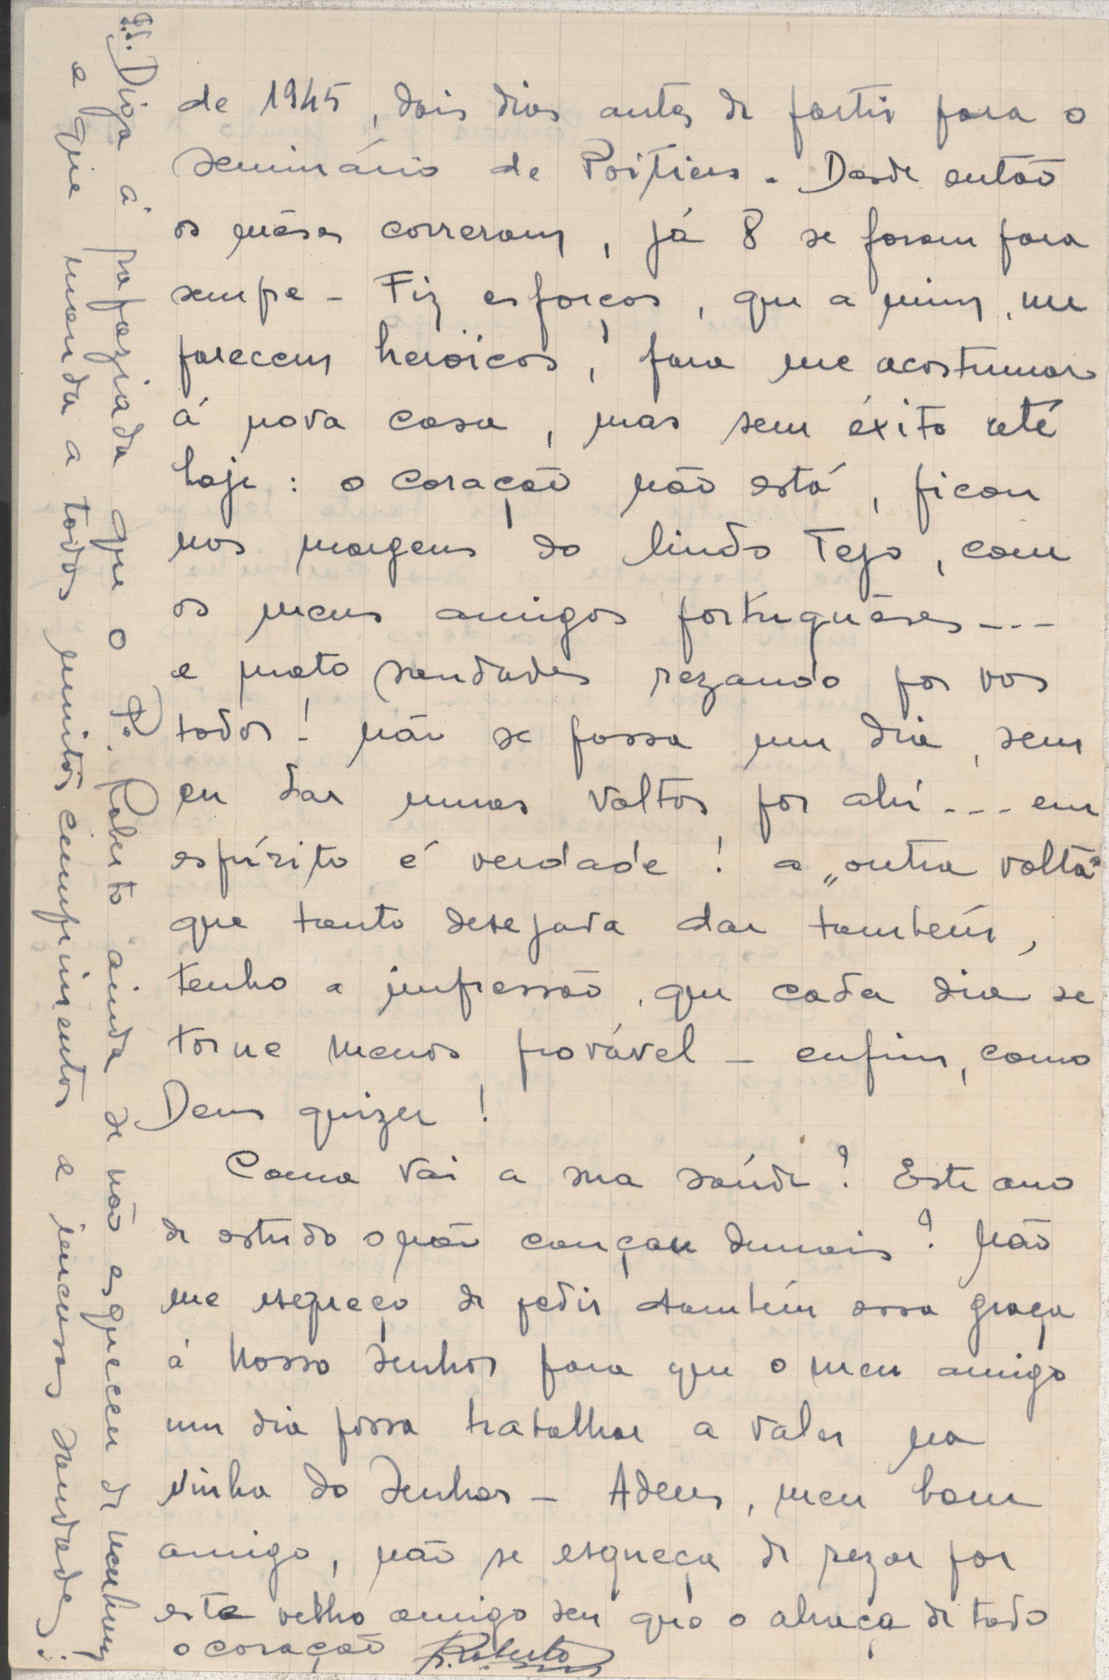 de 1945, dois dias antes de partir para o
seminário de Poitiers. Desde então
os mêses correram, já 8 se foram para
sempre - Fiz esforços, que a mim, me
parecem heroicos, para me acostumar
á nova casa, mas sem éxito até
hoje : o coração não está, ficou
nos margens do lindo Tejo, com
os meus amigos portuguêses ---
e mato saudades rezando por vos
todos ! não se passa um dia, sem
eu dar umas voltas por ahí --- em
espírito é verdade ! a „outra volta"
que tanto desejava dar também,
tenho a impressão, que cada dia se
torne menos provável - enfim, como
Deus quizer !
Como vai a sua saúde ? Este ano
de estudo o não cançou demais ? Não
me esqueço de pedir também essa graça
á Nosso Senhor para que o meu amigo
um dia possa trabalhar a valer na
vinha do Senhor - Adeus, meu bom
amigo, não se esqueça de rezar por
este velho amigo seu que o abraça de todo
o coração P. Roberto
P.S. Diga á rapaziada que o Pe. Roberto ainda se não esqueceu de nenhum
e que manda a todos muitos cumprimentos e imensas saudades !